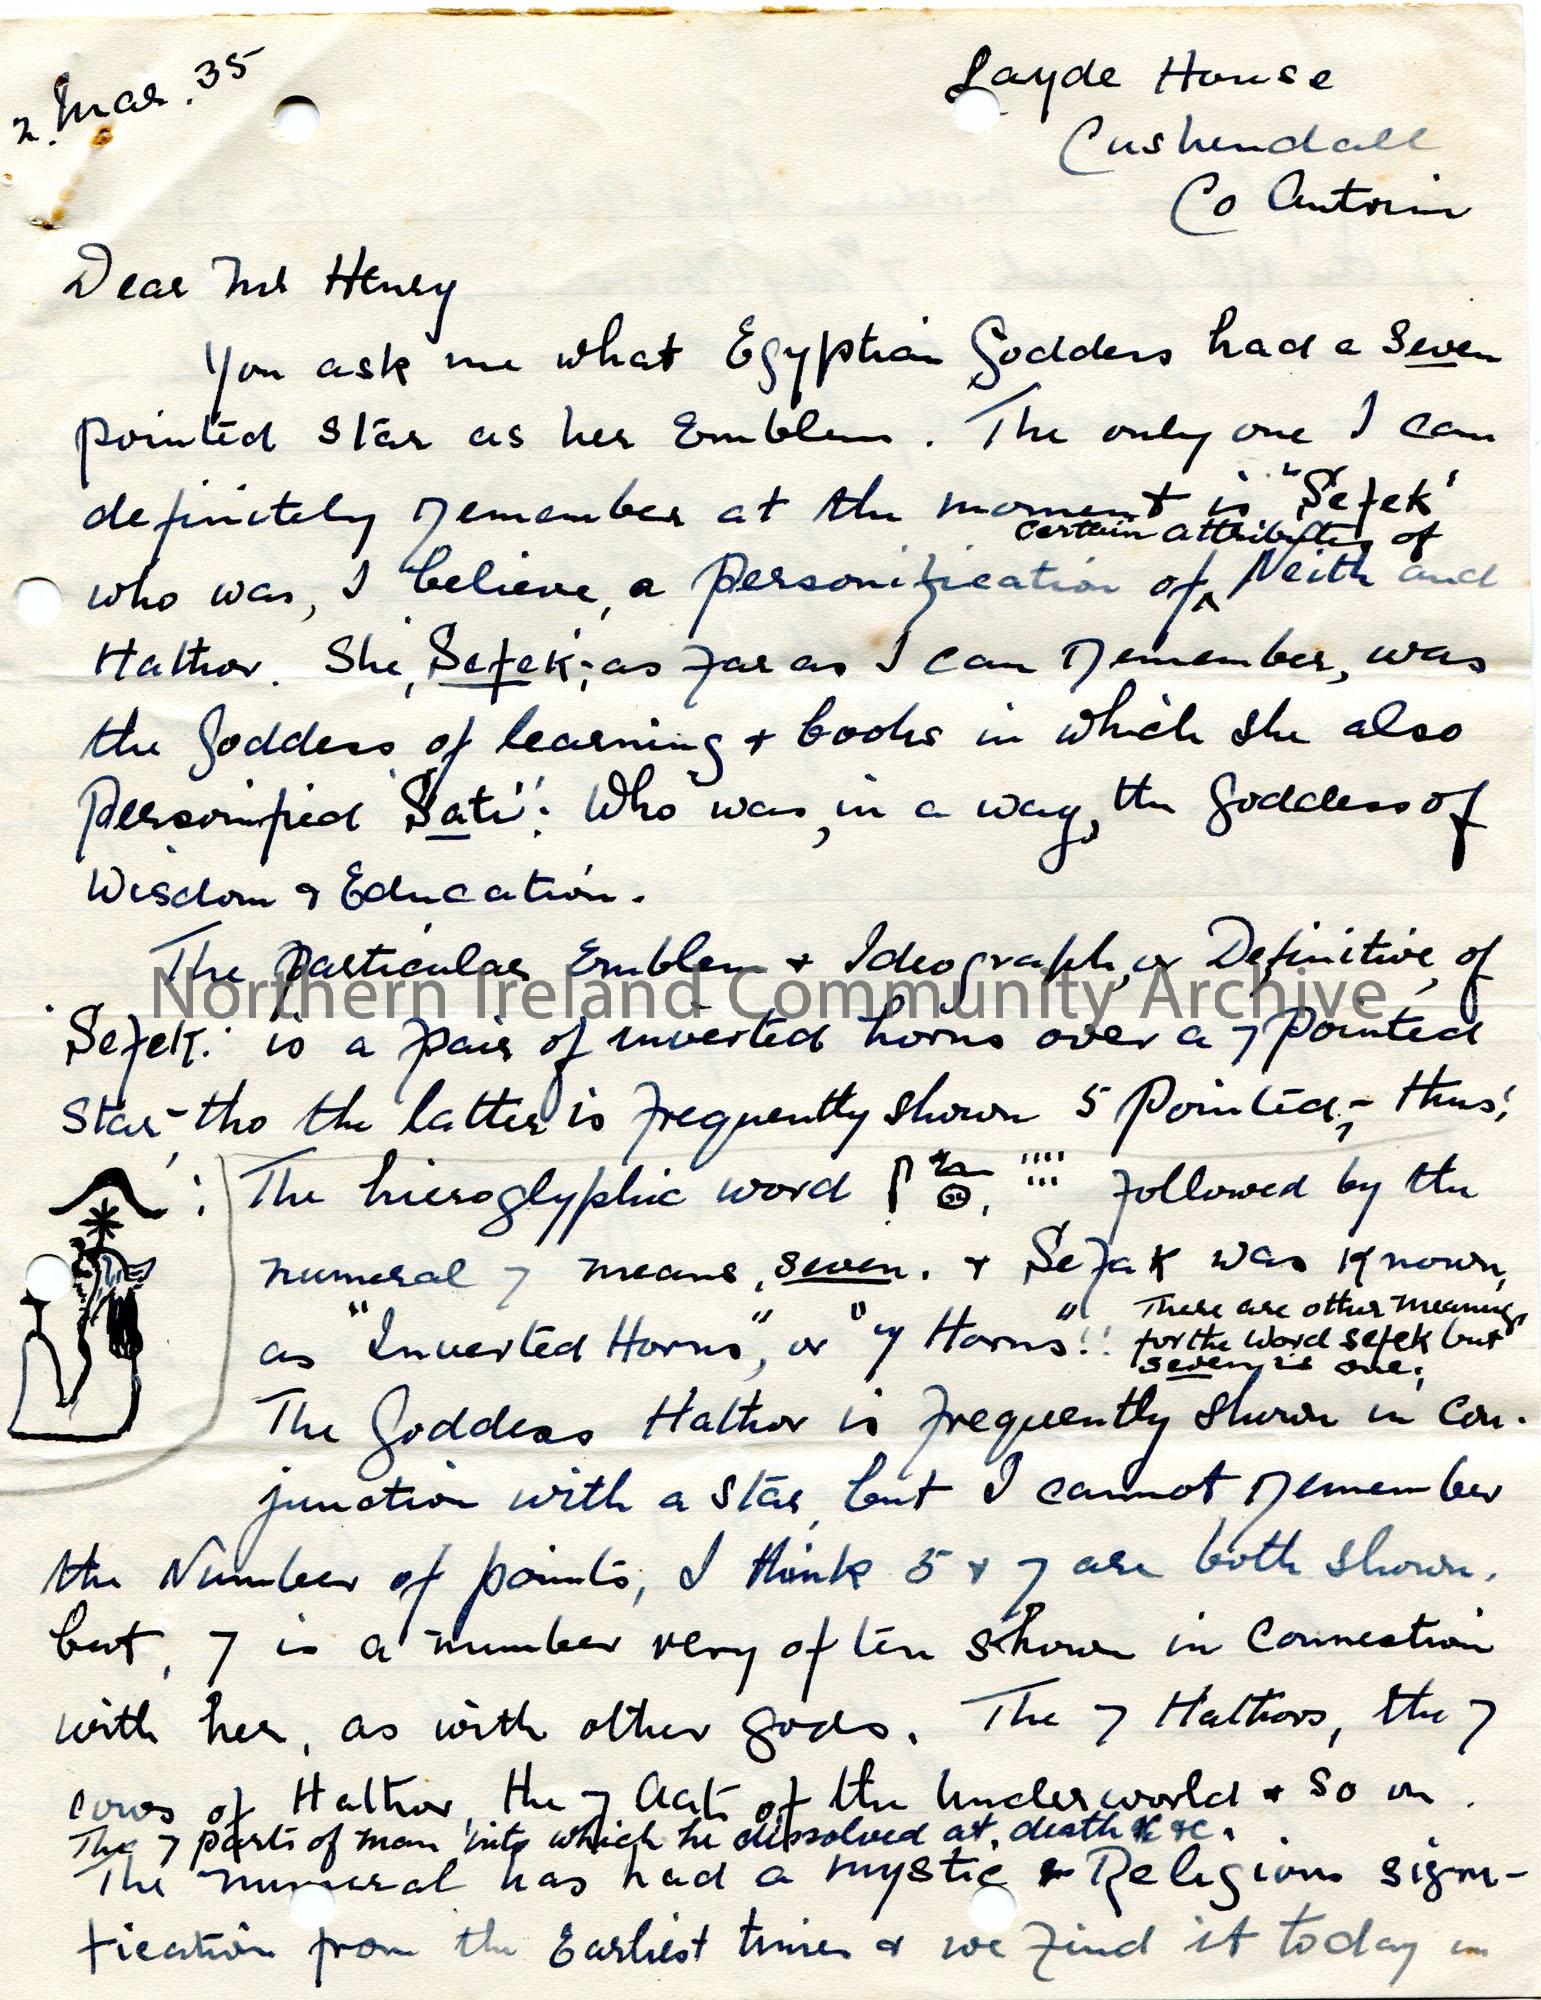 2. Mar. 35
Layde House
Cushendall
Co Antrim
Dear Mr Henry
You ask me what Egyptian Goddess had a seven
pointed star as her Emblem. The only one I can
definitely remember at the moment is "Sefek'
certain attributes of
who was, I believe, a personification of ^ Neith and
Hathor. She, Sefek; as far as I can remember, was
the Goddess of learning & books in which she also
personified 'Sati': Who was, in a way, the goddess of
Wisdom & Education.
The particular Emblem & Ideograph, or Definitive, of
'Sefek.' is a pair of inverted horns over a 7 pointed
star - tho the latter is frequently shown 5 pointed, - thus;
The hieroglyphic word followed by the
numeral 7 means, seven. & Sefak was known,
as "Inverted Horns", or "7 Horns"!!
There are other meanings
for the word sefek but
seven is one.
The Goddess Hathor is frequently shown in con-
junction with a star, but I cannot remember
the Number of points, I think 5 & 7 are both shown.
but, 7 is a number very often shown in connection
with her, as with other gods. The 7 Hathors, the 7
cows of Hathor, the 7 of the Underworld & so on.
The 7 parts of man into which he dissolved at death &c.
The numeral has had a mystic & Religious signi-
fication from the Earliest times & we find it today in
Northern Ireland Community Archive